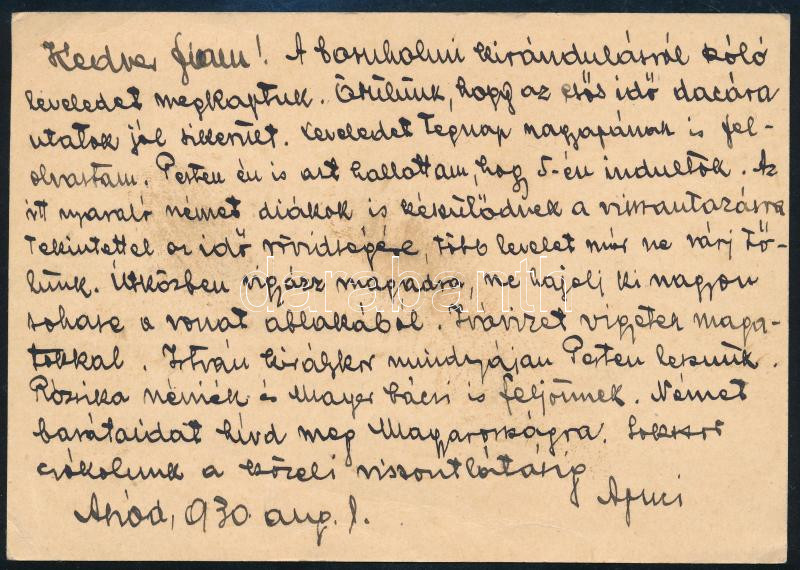 Kedves fiam! A bornholmi kirándulásról szóló
leveledet megkaptuk. Örülünk, hogy az esős idő dacára
utatok jól sikerült. Leveledet tegnap nagyapának is fel-
olvastam. Pesten én is azt hallottam, hogy 5-én indultok. Az
itt nyaraló német diákok is készülődnek a visszautazásra
Tekintettel az idő rövidségére, több levelet már ne várj tő-
lünk. Útközben vigyázz magadra, ne hajolj ki nagyon
sohase a vonat ablakából. Ivóvizet vigyetek maga-
tokkal. István királykor mindnyájan Pesten leszünk.
Rózsika néniék és Mayer bácsi is feljönnek. Német
barátaidat hívd meg Magyarországra. Sokszor
csókolunk a közeli viszontlátásig
Apuci
Aszód, 930. aug. 1.
darabanth